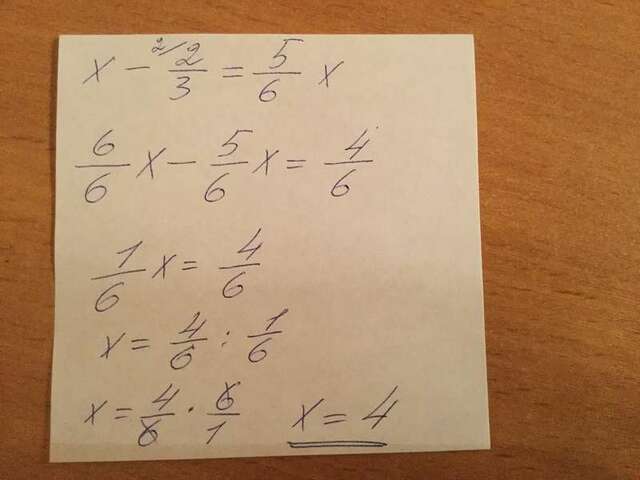 x - ²⁄ 2/3 = 5/6 x
6/6 x - 5/6 x = 4/6
1/6 x = 4/6
x = 4/6 : 1/6
x = 4/6 · 6/1 x = 4